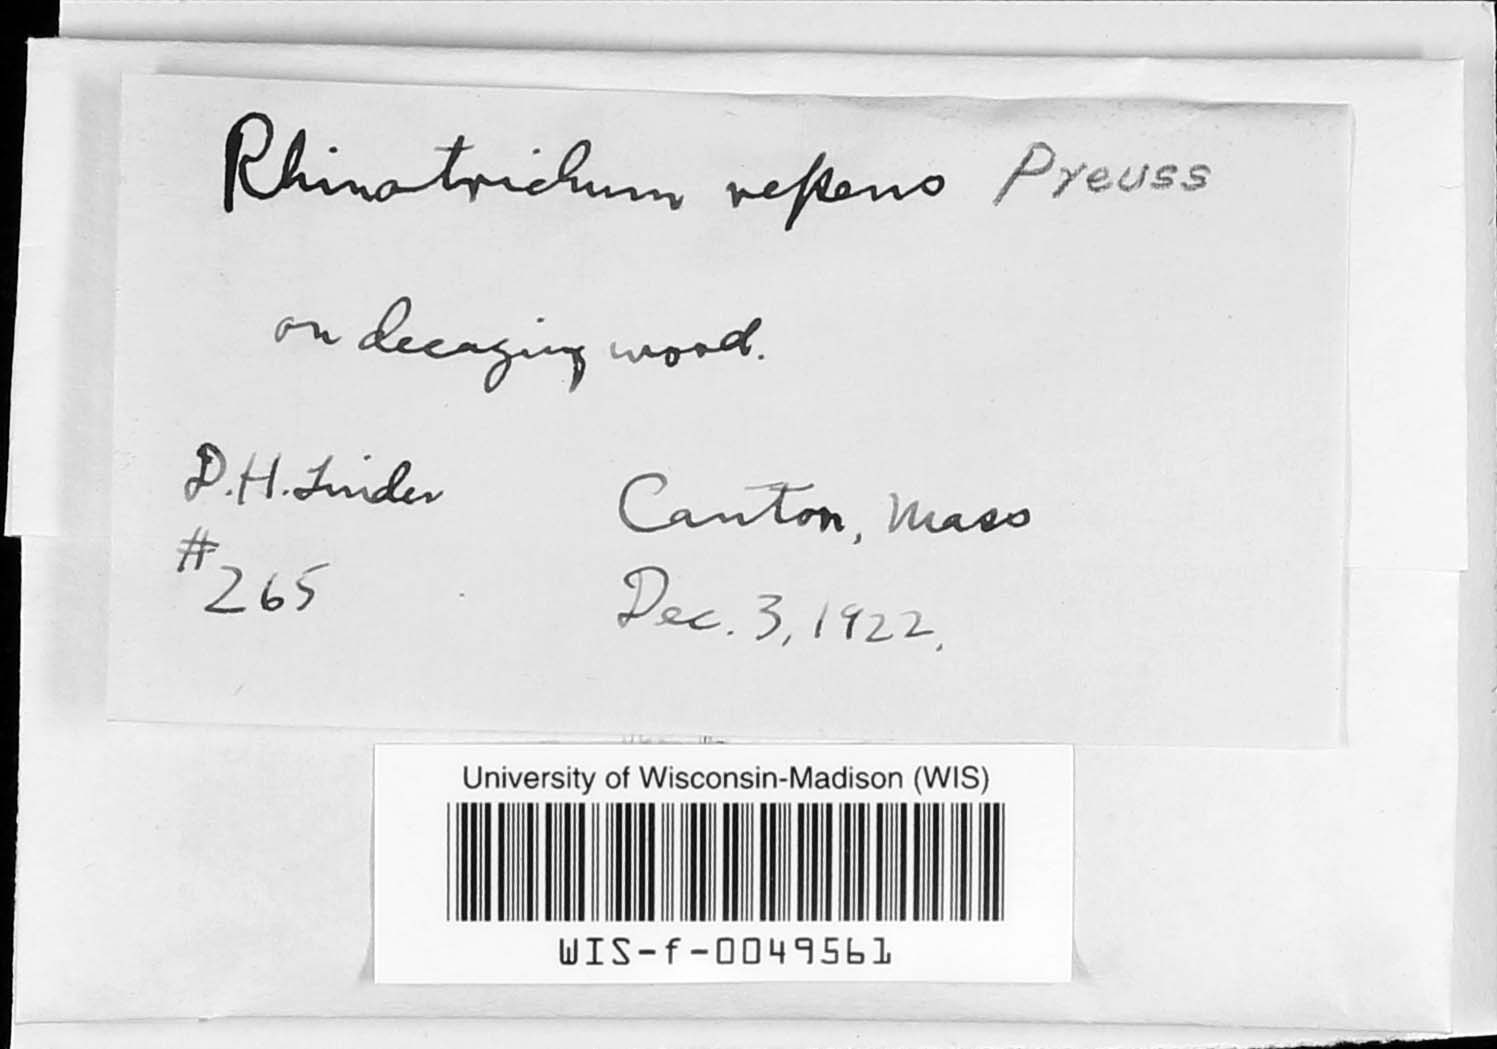 Rhinotrichum repens Preuss
on decaying wood.
D.H. Linder
#265
Canton, Mass
Dec. 3, 1922.
University of Wisconsin-Madison (WIS)
WIS-f-0049561